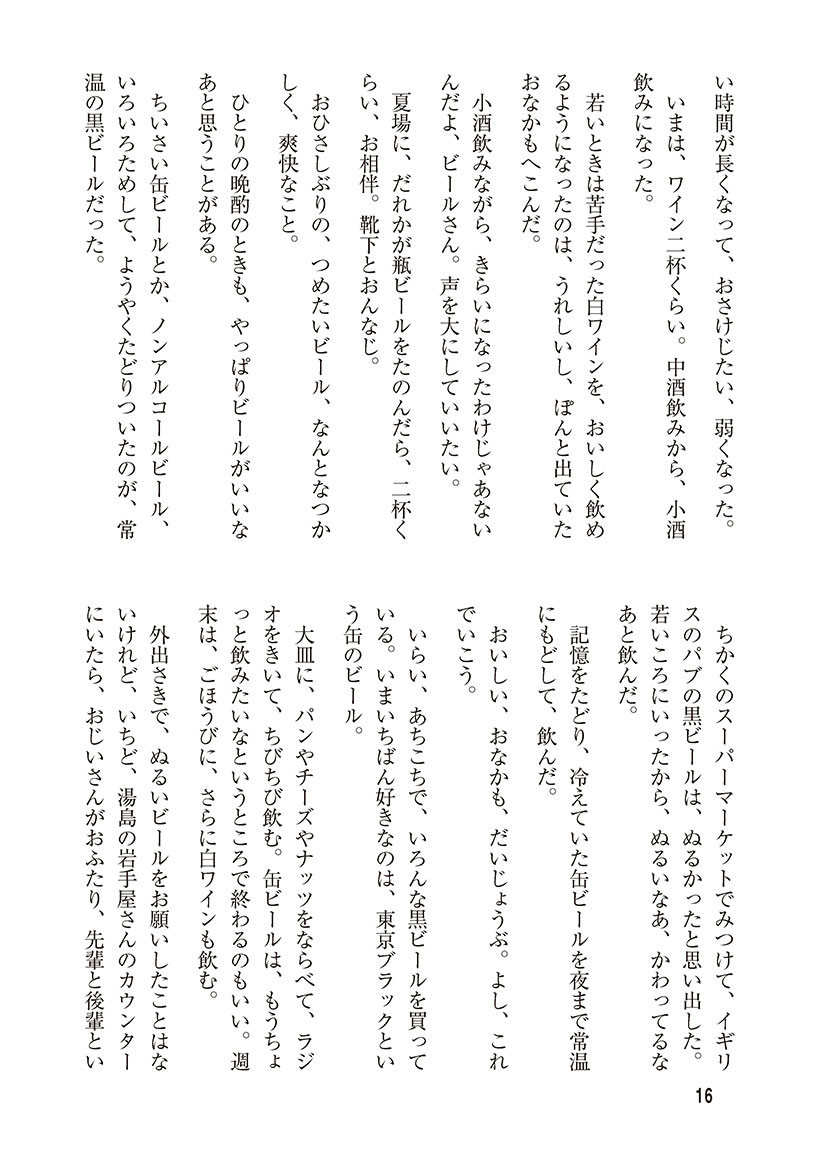 い時間が長くなって、おさけじたい、弱くなった。
いまは、ワイン二杯くらい。中酒飲みから、小酒
飲みになった。
若いときは苦手だった白ワインを、おいしく飲め
るようになったのは、うれしいし、ぽんと出ていた
おなかもへこんだ。
小酒飲みながら、きらいになったわけじゃあない
んだよ、ビールさん。声を大にしていいたい。
夏場に、だれかが瓶ビールをたのんだら、二杯く
らい、お相伴。靴下とおんなじ。
おひさしぶりの、つめたいビール、なんとなつか
しく、爽快なこと。
ひとりの晩酌のときも、やっぱりビールがいいな
あと思うことがある。
ちいさい缶ビールとか、ノンアルコールビール、
いろいろためして、ようやくたどりついたのが、常
温の黒ビールだった。
ちかくのスーパーマーケットでみつけて、イギリ
スのパブの黒ビールは、ぬるかったと思い出した。
若いころにいったから、ぬるいなあ、かわってるな
あと飲んだ。
記憶をたどり、冷えていた缶ビールを夜まで常温
にもどして、飲んだ。
おいしい、おなかも、だいじょうぶ。よし、これ
でいこう。
いらい、あちこちで、いろんな黒ビールを買って
いる。いまいちばん好きなのは、東京ブラックとい
う缶のビール。
大皿に、パンやチーズやナッツをならべて、ラジ
オをきいて、ちびちび飲む。缶ビールは、もうちょ
っと飲みたいなというところで終わるのもいい。週
末は、ごほうびに、さらに白ワインも飲む。
外出さきで、ぬるいビールをお願いしたことはな
いけれど、いちど、湯島の岩手屋さんのカウンター
にいたら、おじいさんがおふたり、先輩と後輩とい
16